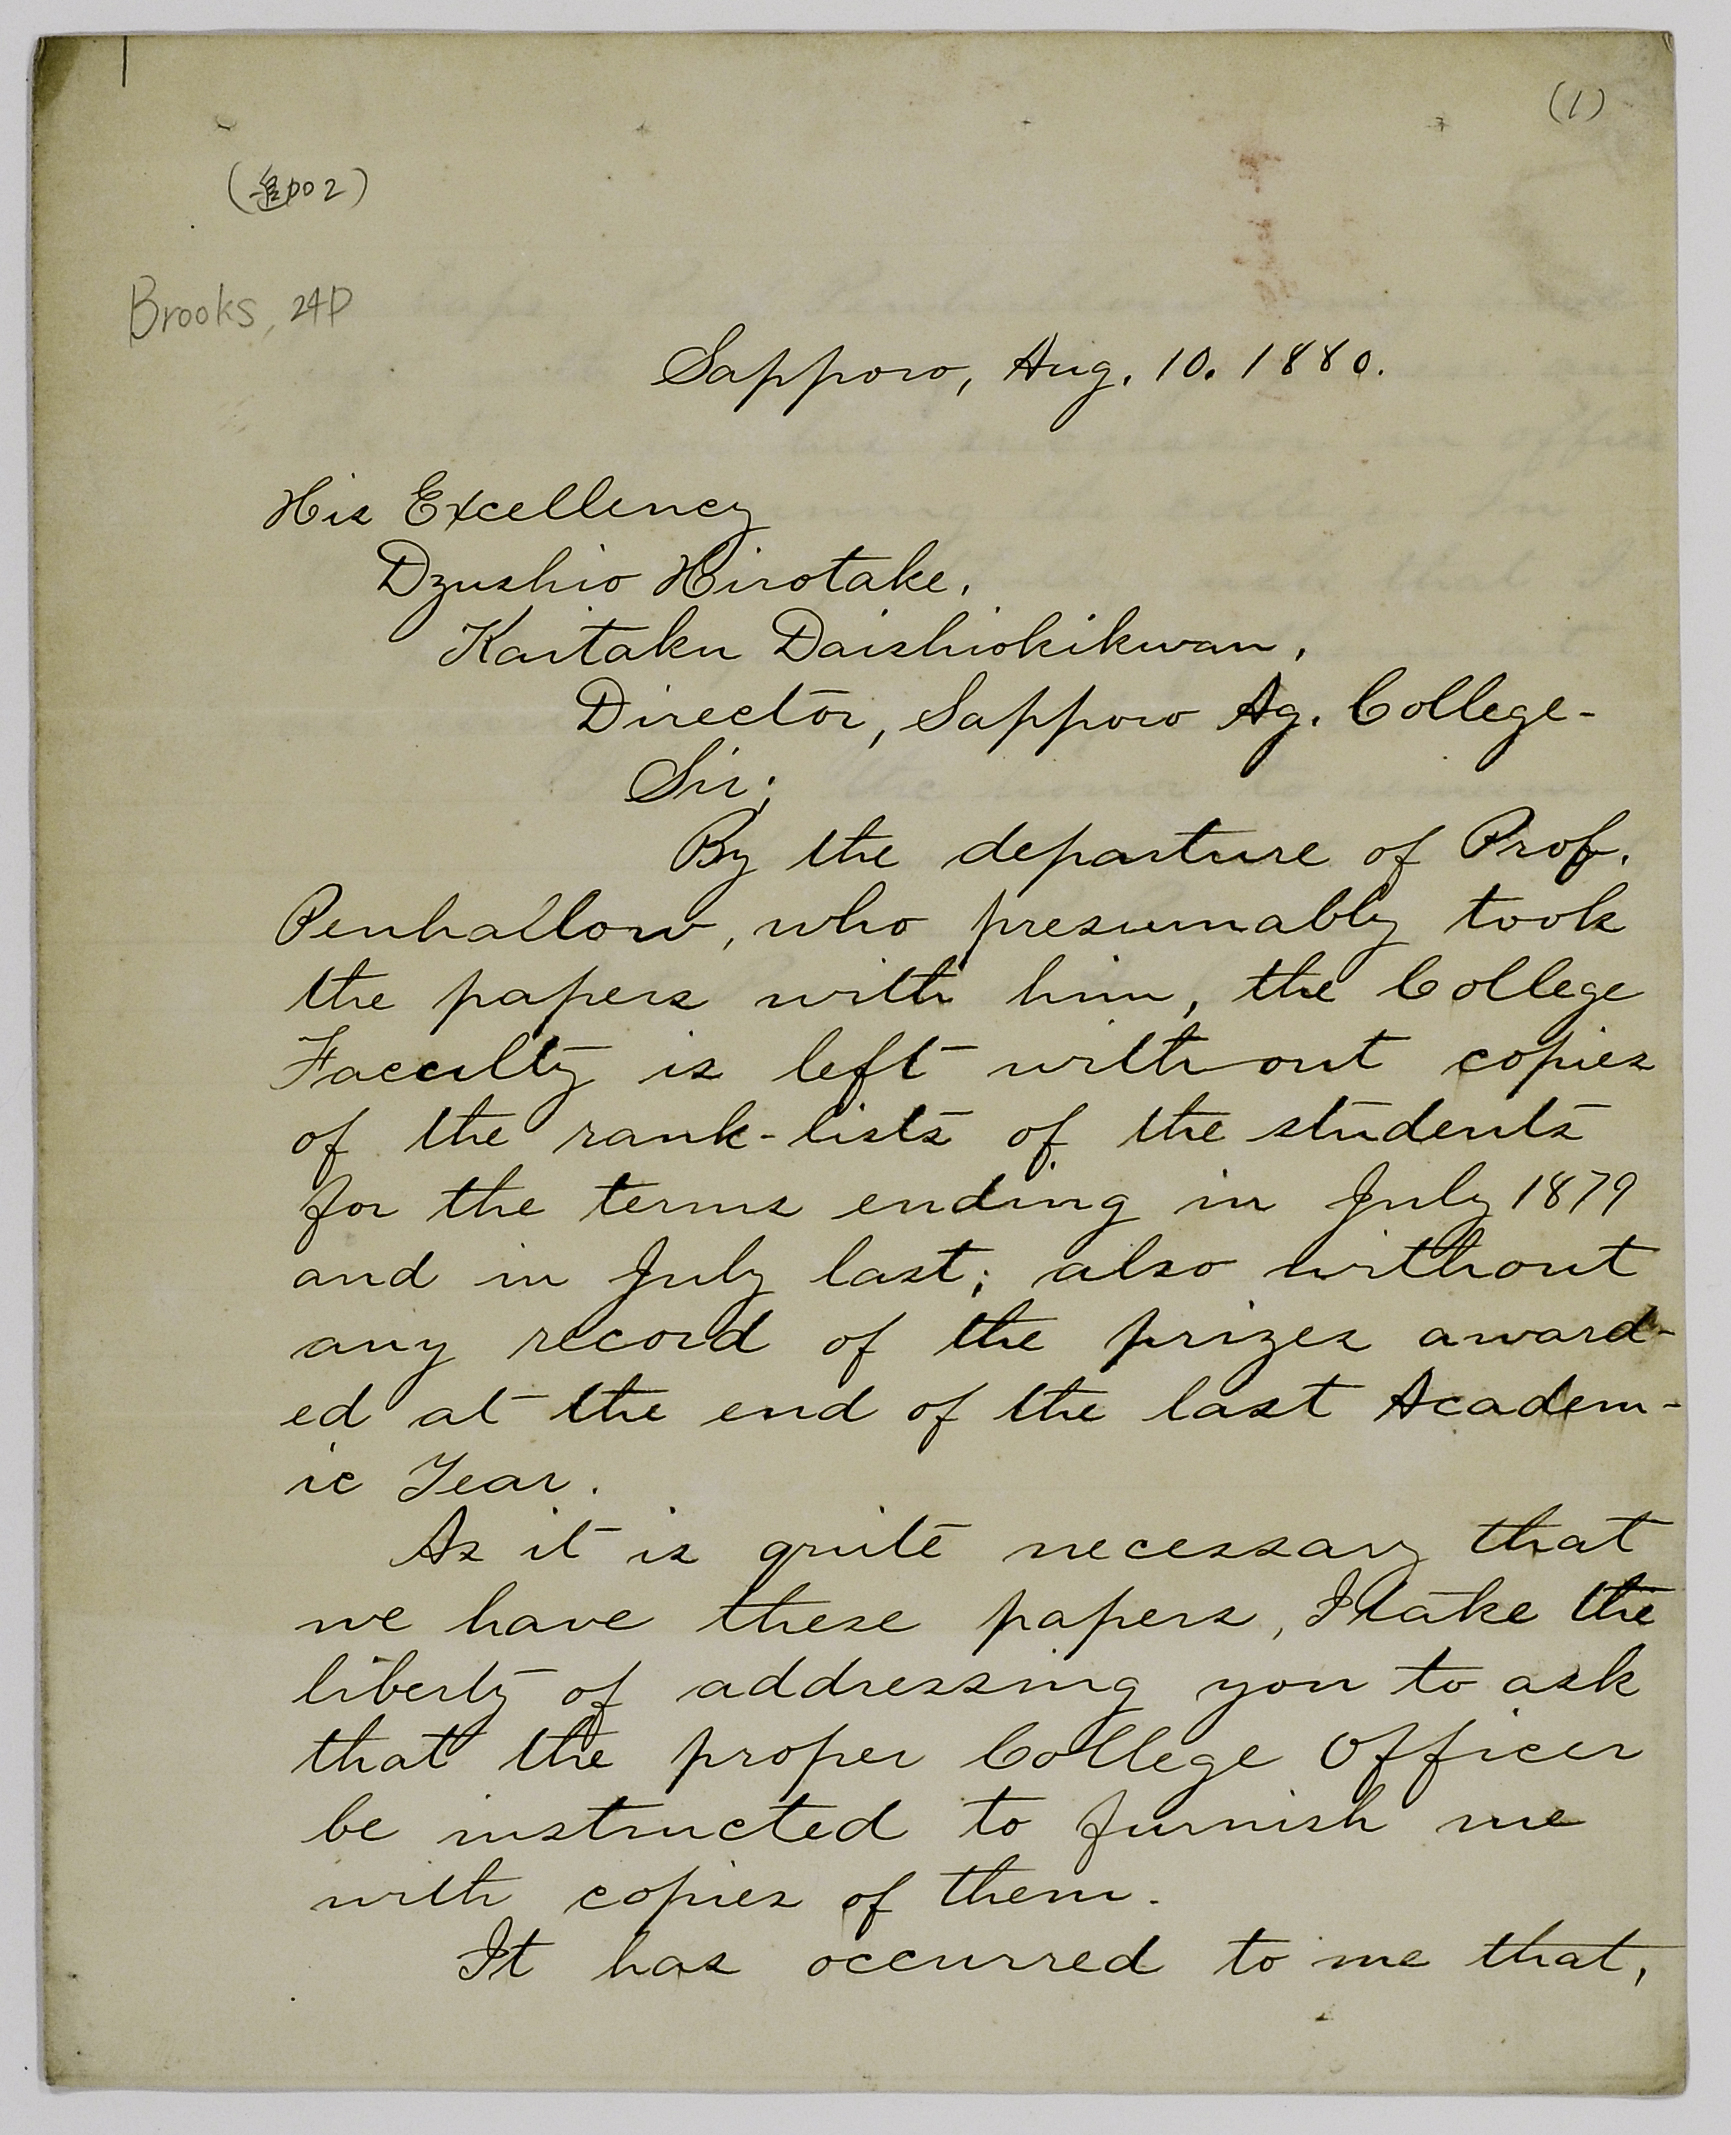 (1)
(追加2)
Brooks, 24P
Sapporo, Aug. 10. 1880.
His Excellency
Dzushio Hirotake,
Kaitaku Daishiokikwan,
Director, Sapporo Ag. College-
Sir;
By the departure of Prof.
Penhallow, who presumably took
the papers with him, the College
Faculty is left without copies
of the rank-lists of the students
for the terms ending in July 1879
and in July last; also without
any record of the prizes award-
ed at the end of the last Academ-
ic Year.
As it is quite necessary that
we have these papers, I take the
liberty of addressing you to ask
that the proper College Officer
be instructed to furnish me
with copies of them.
It has occurred to me that,